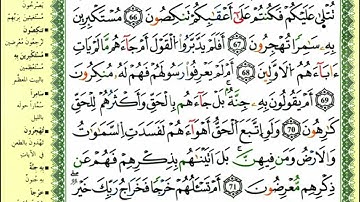 تُتْلَىٰ عَلَيْكُمْ فَكُنتُمْ عَلَىٰٓ أَعْقَٰبِكُمْ تَنكِصُونَ ٦٦ مُسْتَكْبِرِينَ
بِهِۦ سَٰمِرًا تَهْجُرُونَ ٦٧ أَفَلَمْ يَدَّبَّرُوا۟ ٱلْقَوْلَ أَمْ جَآءَهُم مَّا لَمْ يَأْتِ
ءَابَآءَهُمُ ٱلْأَوَّلِينَ ٦٨ أَمْ لَمْ يَعْرِفُوا۟ رَسُولَهُمْ فَهُمْ لَهُۥ مُنكِرُونَ
٦٩ أَمْ يَقُولُونَ بِهِۦ جِنَّةٌۢ ۚ بَلْ جَآءَهُم بِٱلْحَقِّ وَأَكْثَرُهُمْ لِلْحَقِّ
كَٰرِهُونَ ٧٠ وَلَوِ ٱتَّبَعَ ٱلْحَقُّ أَهْوَآءَهُمْ لَفَسَدَتِ ٱلسَّمَٰوَٰتُ
وَٱلْأَرْضُ وَمَن فِيهِنَّ ۚ بَلْ أَتَيْنَٰهُم بِذِكْرِهِمْ فَهُمْ عَن
ذِكْرِهِم مُّعْرِضُونَ ٧١ أَمْ تَسْـَٔلُهُمْ خَرْجًا فَخَرَاجُ رَبِّكَ خَيْرٌ ۖ
تنكصون
مستكبرين به
سامراً
تهجرون
به جنة
خرجاً